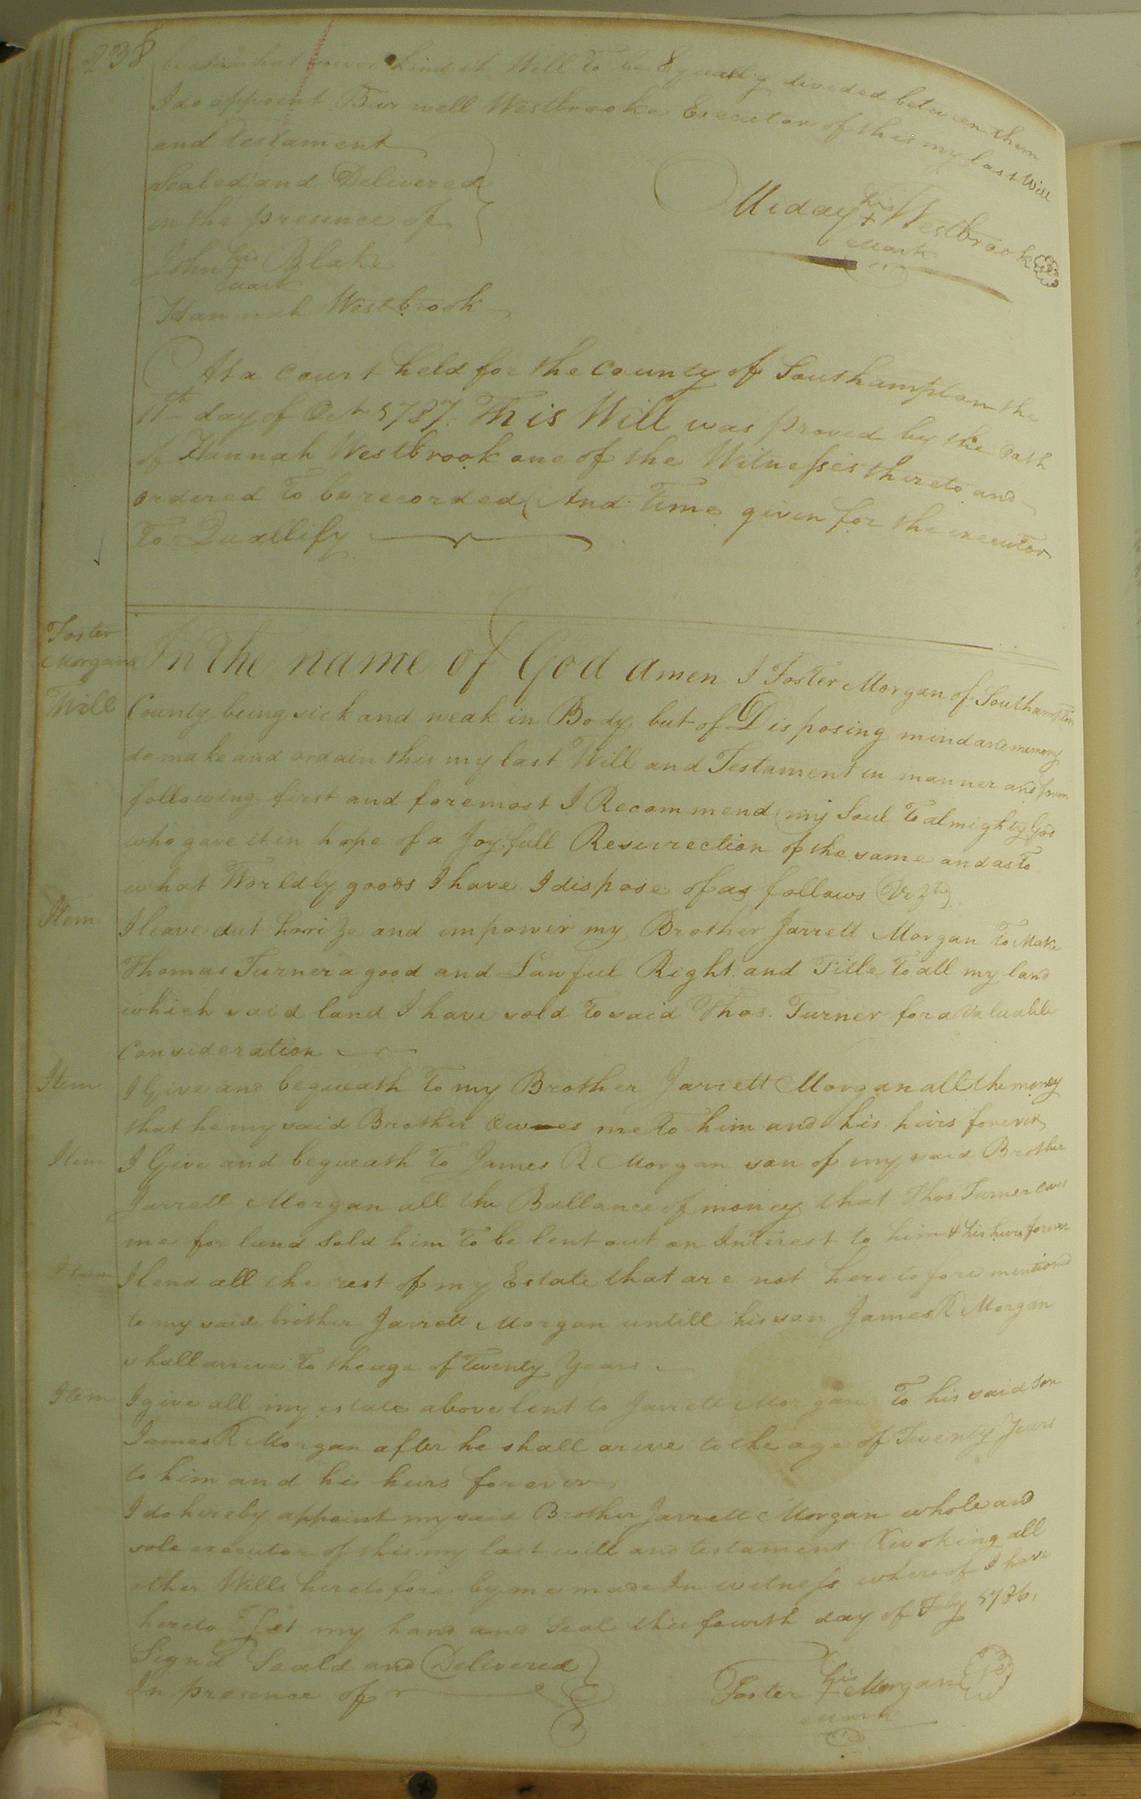 238
be what soever kind it Will To be Equally divided between them
I do appoint Bur well Westbrooke Executor of this my last Will
and Testament
Sealed and Delivered
in the presence of
Miday his + mark Westbrook
John his + mark Blake
Hannah Westbrook
At a Court held for the County of Southampton the
11th day of Oct 1787. This Will was proved by the Oath
of Hannah Westbrook one of the Witnesses thereto and
ordered To be recorded And Time given for the executor
To Quallify
Foster Morgans Will
In The name of God Amen I Foster Morgan of Southampton
County being sick and weak in Body, but of Disposing mind and memory
do make and ordain this my last Will and Testament in manner and form
following, first and foremost I Recommend my Soul To almighty God
who gave it in hope of a Joyfull Resurrection of the same and as To
what Worldly goods I have I dispose of as follows (Vizt)
Item I leave aut horize and impower my Brother Jarrett Morgan To Make
Thomas Turner a good and Lawfull Right and Title To all my land
which said land I have sold To said Thos. Turner for a Valuable
Consideration
Item I Give and bequeath To my Brother Jarrett Morgan all the money
that he my said Brother Owes me To him and his heirs forever
Item I Give and bequeath To James R Morgan son of my said Brother
Jarrett Morgan all the Ballance of money that Thos Turner owes
me for land Sold him To be lent out on Interest to him & his heirs forever
Item I lend all the rest of my Estate that are not heretofore mentiond
to my said brother Jarrett Morgan untill his son James R Morgan
shall arrive To the age of Twenty Years
Item I give all my estate above lent to Jarrett Morgan To his said Son
James R Morgan after he shall arive to the age of Twenty Years
to him and his heirs forever
I do hereby appoint my said Brother Jarrett Morgan whole and
sole executor of this my last will and testament Revoking all
other Wills heretofore by me made In witness whereof I have
hereto Set my hand and Seal this fourth day of 1786.
Signd Seald and Delivered
In presence of
Foster his + mark Morgan